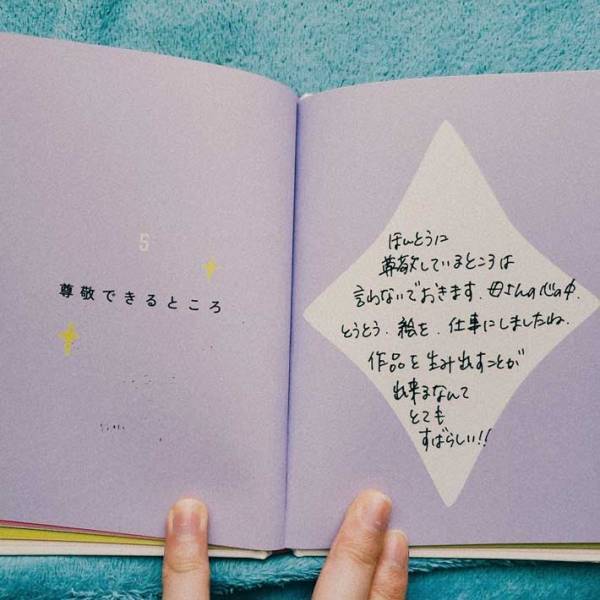 5
尊敬できるところ
ほんとうに
尊敬しているところは
言わないでおきます、母さんの心の中、
とうとう、絵を、仕事にしましたね、
作品を生み出すことが
出来るなんて
とても
すばらしい!!